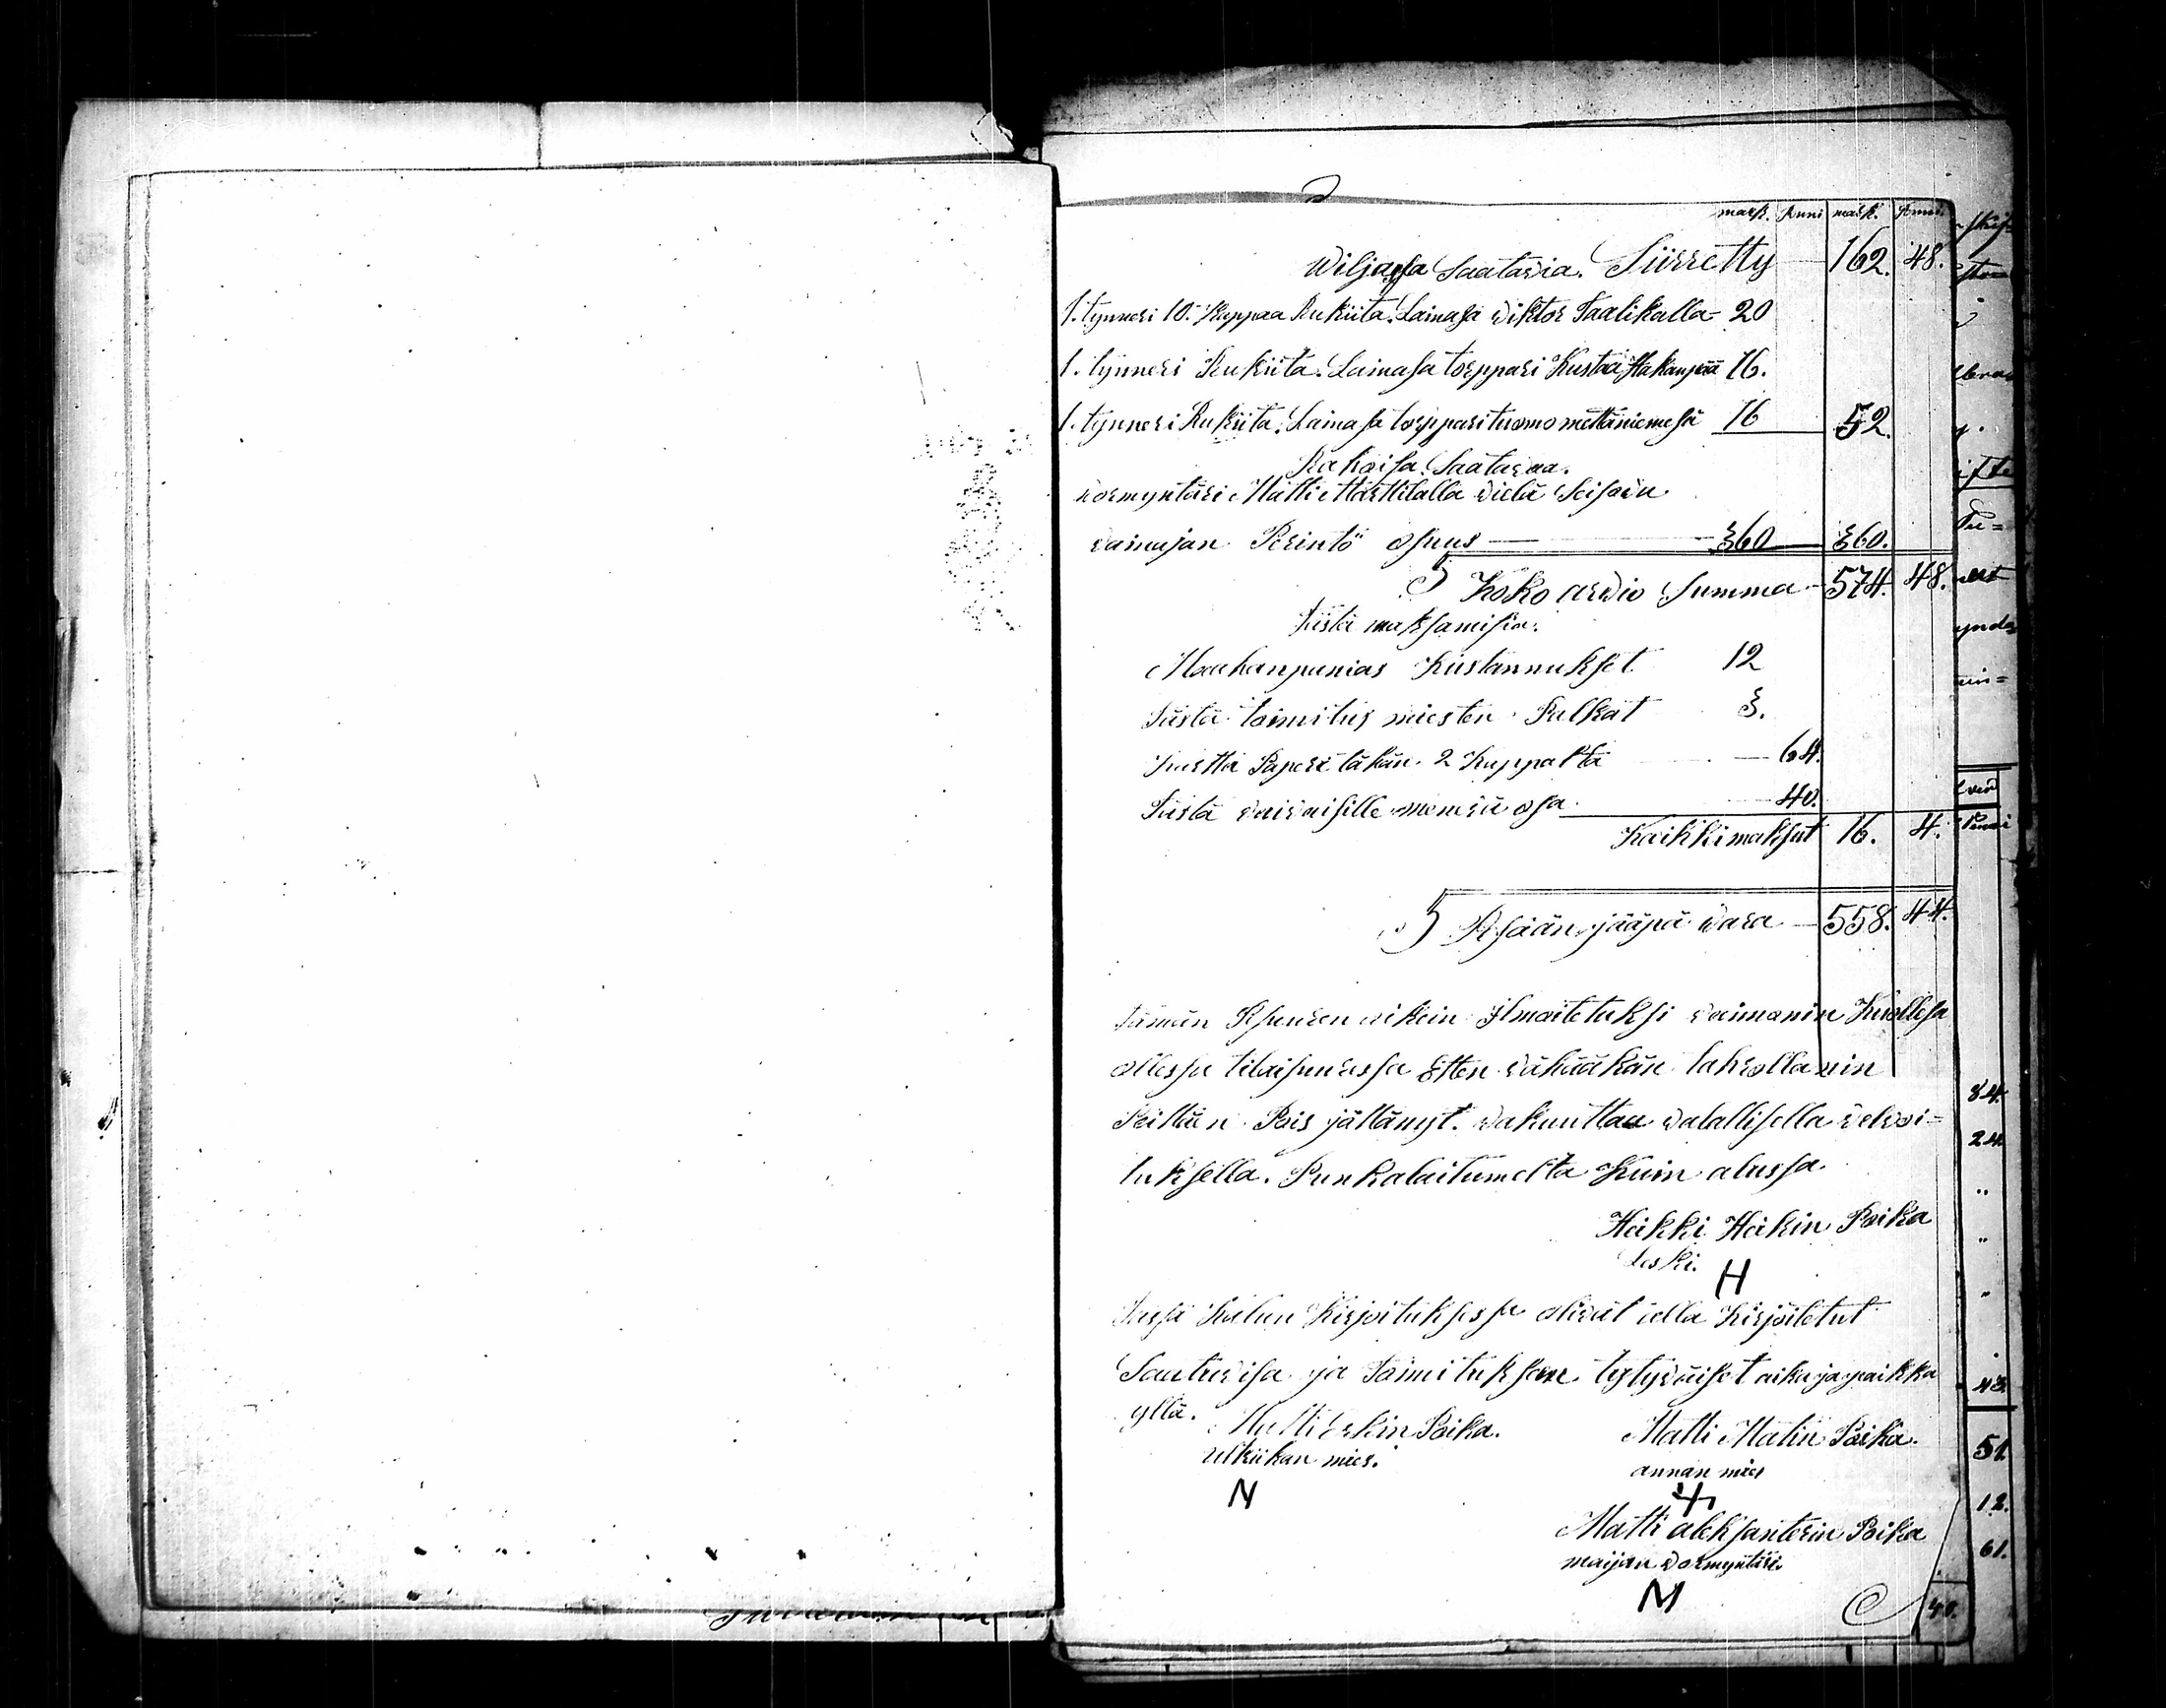 2
mark. Penni mark. Penni
Wiljassa Saatawia. Siirretty 162. 48.
1. tynneri 10. kappaa Rukiita. Lainasa Wiktor Taalikalla 20
1. tynneri Rukiita. Lainasa torppari Kustaa Hakanpää 16.
1. tynneri Rukiita. Lainasa torppari tuomo mettäniemesä 16 52.
Rahoisa Saatawaa.
wormyntäri Matti Marttilalla wielä Seisowa
waimajan Perintö osuus 360 360.
Koko arwio Summa 574. 48.
Tästä maksamisia.
Maahanpanias Kustannukset 12
Tästä toimitus miesten Palkat 3.
Kartta Paperi tähän 2 Kappalta 64.
Tästä waiwaisille menewä osa 40.
Kaikki maksut 16. 4.
Pesään jääpä wara 558. 44.
tämän Pesueen oikein ilmoitetuksi waimonin Kuollesa
ollessa tilaisuudessa Etten wähääkän tahdollanin
Peittän Pois jättänyt. wakuuttaa walallisella welwoi=
tuksella. Punkalaitumelta Kuin alussa.
Heikki Heikin Poika
Leski.
H
Tässä Kalun Kirjoituksessa oliwat alla Kirjoitetut
Saatuwisa ja Toimituksen tytywäiset aika ja paikka
yllä. Matti Erkin Poika. Matti Matin Poika.
Ulriikan mies. annan mies
N
Matti aleksanterin Poika
maijan wormyntäri.
M
84.
24.
43
51.
12.
61.
40.